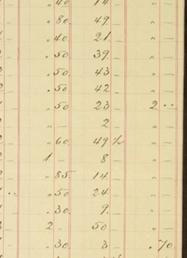 .40 14
.80 49
.40 21
.50 39
.50 43
.50 42
.50 23 2
2
.60 49½
1 8
.85 14
.50 24
.30 9
2 50
.30 3 .70